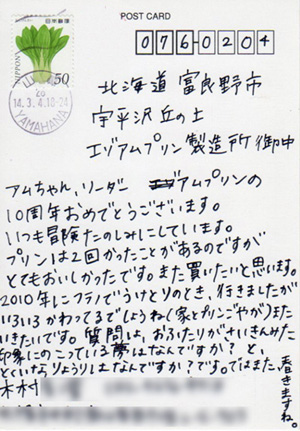 POST CARD
日本郵便
50
NIPPON
14.3.4.18-24
YAMAHANA
076-0204
北海道 富良野市
字平沢 丘の上
エゾアムプリン製造所 御中
アムちゃん、リーダー エゾアムプリンの
10周年おめでとうございます。
いつも冒険たのしみにしています。
プリンは2回かったことがあるのですが
とてもおいしかったです。また買いたいと思います。
2010年にフラノでうけとりのとき、行きましたが
いろいろかわってるでしょうね（家とプリンごやが）また
いきたいです。質問は、おふたりがさいきんみた
印象にのこっている夢はなんですか？と、
とくいなりょうりはなんですか？です。ではまた。
春きますね。
木村